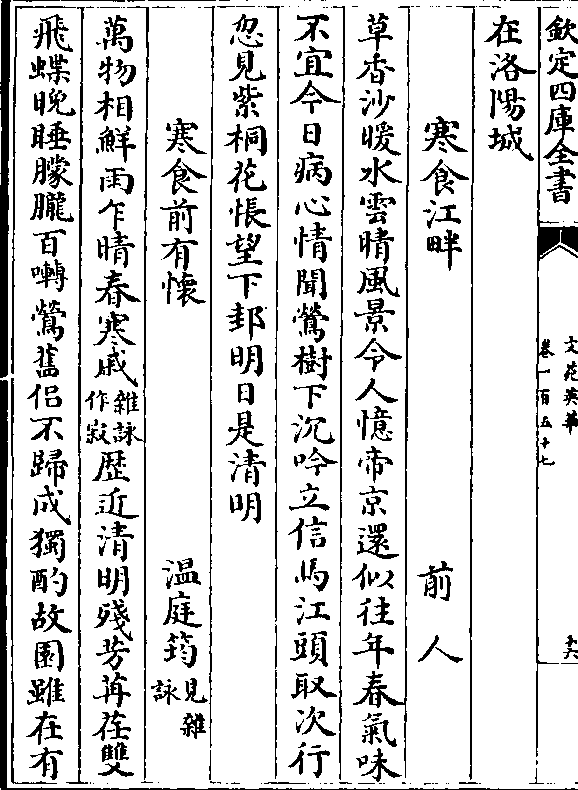 欽定四庫全書
文苑英華
卷一百五十七
十六
在洛陽城
寒食江畔 前人
草香沙暖水雲晴風景令人憶帝京還似往年春氣味
不宜今日病心情聞鶯樹下沉吟立信馬江頭取次行
忽見紫桐花悵望下邽明日是清明
寒食前有懷 温庭筠見雜詠
萬物相鮮雨乍晴春寒戚雜詠作寂歴近清明殘芳苒荏雙
飛蝶晚睡朦朧百囀鶯舊侣不歸成獨酌故園雖在有